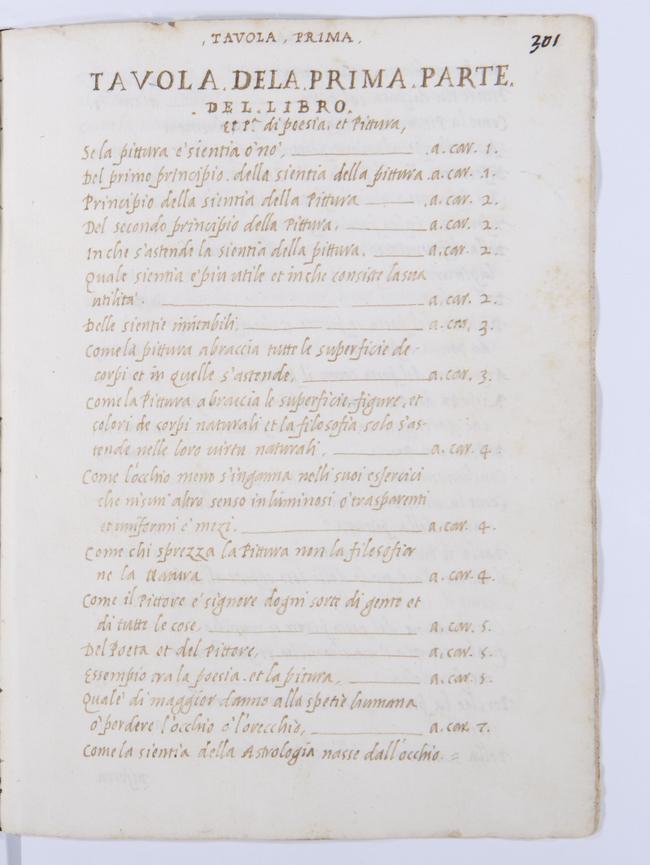 , TAVOLA , PRIMA ,
301
TAVOLA . DELA . PRIMA . PARTE .
. DEL . LIBRO .
Et P.ª di poesia, et Pittura,
Se la pittura e' sientia o' no', a. car. 1.
Del primo principio. della sientia della pittura. a. car. 1.
Principio della sientia della Pittura a. car. 2.
Del secondo principio della Pittura. a. car. 2.
In che s'astende la sientia della pittura. a. car. 2.
Quale sientia e' piu utile et in che consiste la sua
utilita'. a. car. 2.
Delle sientie imitabili. a. car. 3.
Come la pittura abraccia tutte le superficie de
corpi et in quelle s'astende, a. car. 3.
Come la Pittura abraccia le superficie, figure, et
colori de corpi naturali et la filosofia solo s'as-
tende nelle loro uirtu naturali, a. car. 4.
Come l'occhio meno s'inganna nelli suoi essercici
che nisun'altro senso in luminosi o' trasparenti
et uniformi e' mezi. a. car. 4.
Come chi sprezza la Pittura non la filosofia
ne la Natura a. car. 4.
Come il Pittore e' signore dogni sorte di gente et
di tutte le cose, a. car. 5.
Del Poeta et del Pittore, a. car. 5.
Essempio tra la poesia. et la pitura, a. car. 5.
Quale' di maggior danno alla spetie humana
o' perdere l'occhio o' l'orecchio, a. car. 7.
Come la sientia della Astrologia nasse dall'occhio =